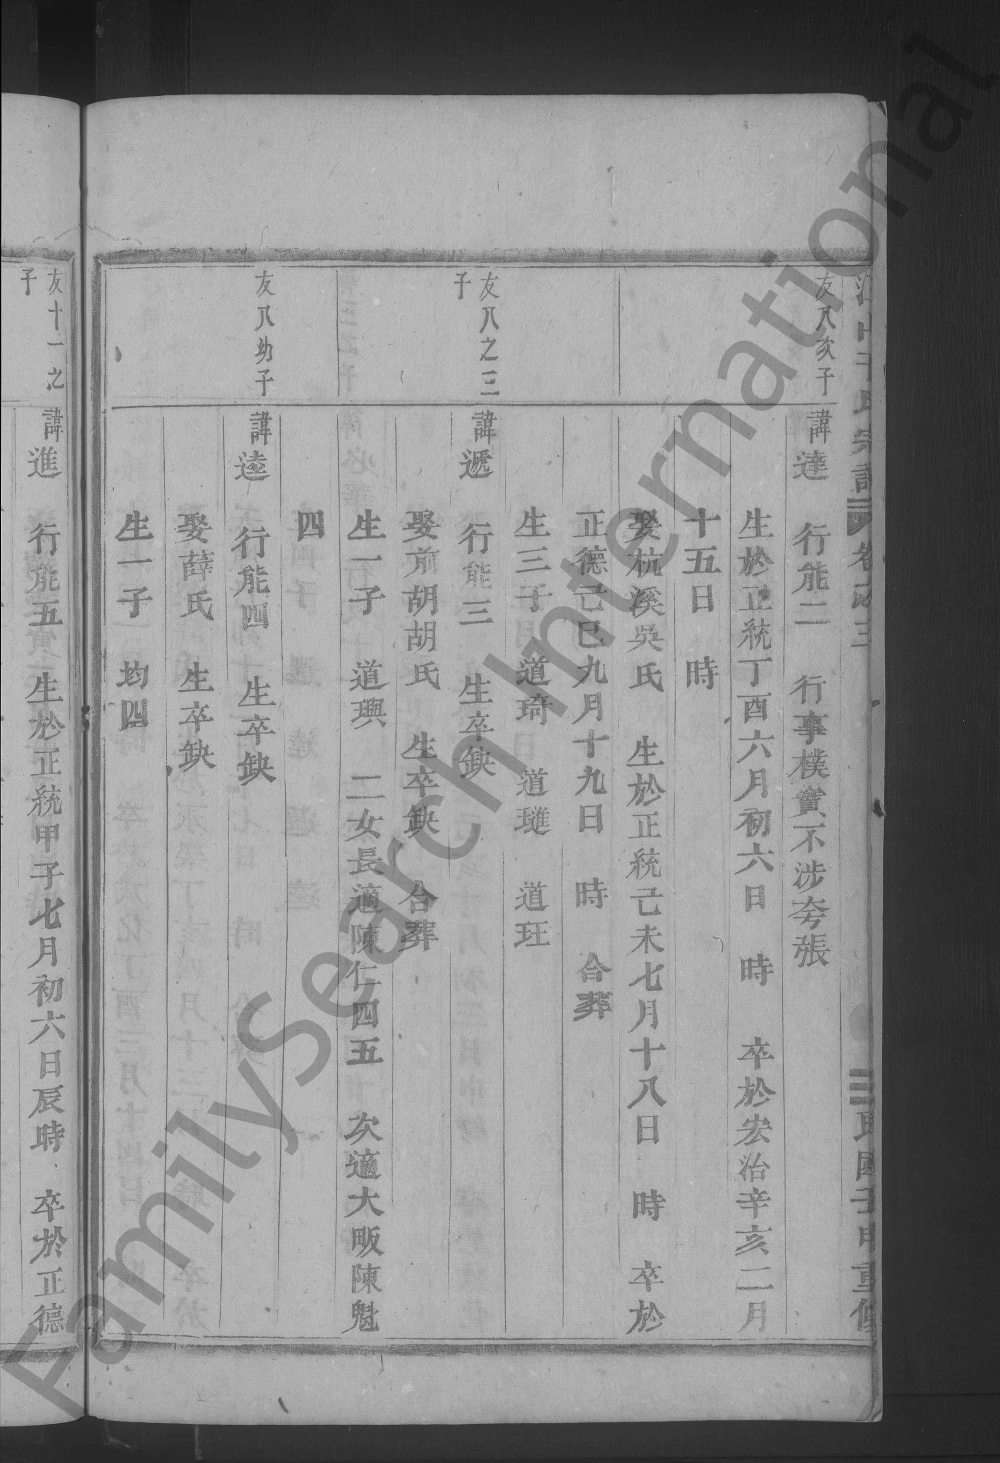 氏宗譜 卷 三 民國壬申重修
友八次子
諱達 行能二 行事樸實不涉夸張
生於正統丁酉六月初六日 時 卒於宏治辛亥二月
十五日 時
娶杭溪吳氏 生於正統己未七月十八日 時 卒於
正德己巳九月十九日 時 合葬
生三子 道琦 道璡 道玨
友八之三子
諱遞 行能三 生卒缺
娶前胡胡氏 生卒缺 合葬
生一子 道興 二女長適陳仁四五 次適大畈陳魁
四
友八幼子
諱逵 行能四 生卒缺
娶薛氏 生卒缺
生一子 均四
友十一之子
諱進 行能五 生於正統甲子七月初六日辰時 卒於正德
FamilySearch International